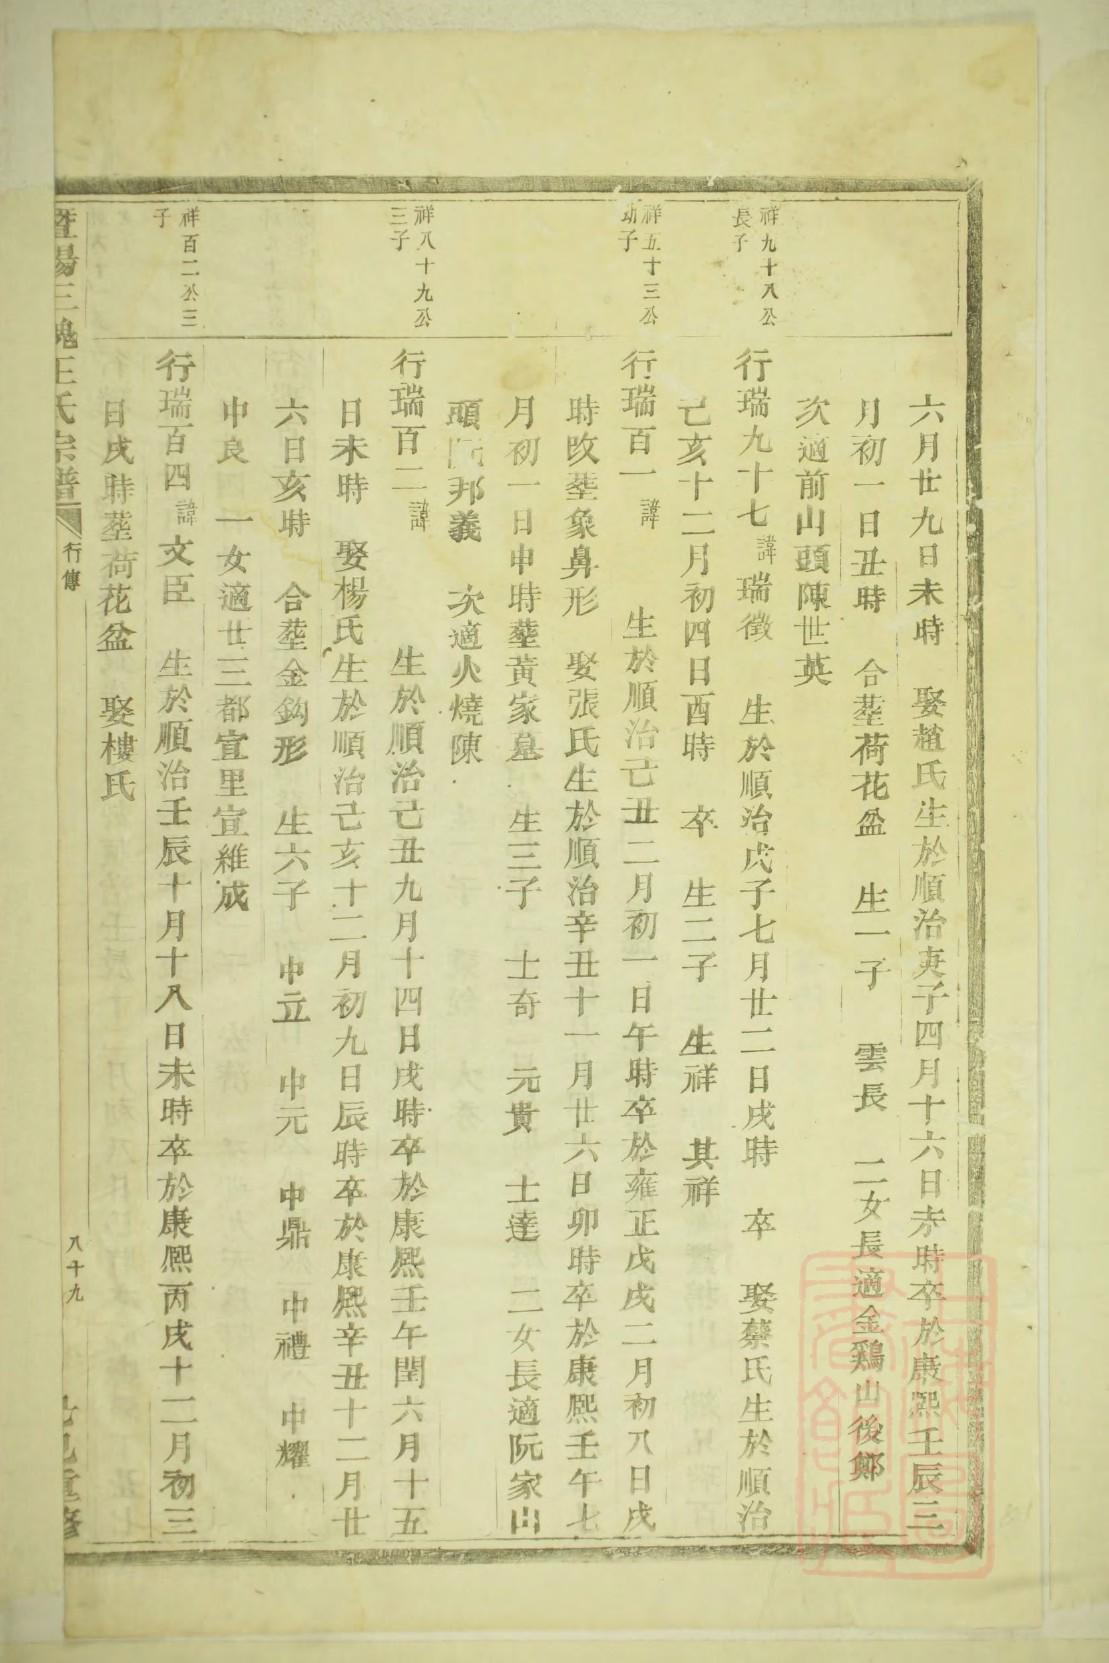 六月廿九日未時　娶趙氏生於順治庚子四月十六日未時卒於康熙壬辰三
月初一日丑時　合塟荷花盆　生一子　雲長　二女長適金鷄山後鄭
次適前山頭陳世英
祥九十八公
長子
行瑞九十七諱瑞徵　生於順治戊子七月廿二日戌時　卒　娶蔡氏生於順治
己亥十二月初四日酉時　卒　生二子　生祥　其祥
祥五十三公
幼子
行瑞百一諱　生於順治己丑二月初一日午時卒於雍正戊戌二月初八日戌
時改塟象鼻形　娶張氏生於順治辛丑十一月廿六日卯時卒於康熙壬午七
月初一日申時塟黃家墓　生三子　士奇　元貴　士達　二女長適阮家山
頭阮邦義　次適火燒陳
祥八十九公
三子
行瑞百二諱　生於順治己丑九月十四日戌時卒於康熙壬午閏六月十五
日未時　娶楊氏生於順治己亥十二月初九日辰時卒於康熙辛丑十二月廿
六日亥時　合塟金鈎形　生六子　中立　中元　中鼎　中禮　中耀
中良　一女適廿三都宣里宣維成
祥百二公三
子
行瑞百四諱文臣　生於順治壬辰十月十八日未時卒於康熙丙戌十二月初三
日戌時塟荷花盆　娶樓氏
暨陽三槐王氏宗譜　行傳　八十九　重修